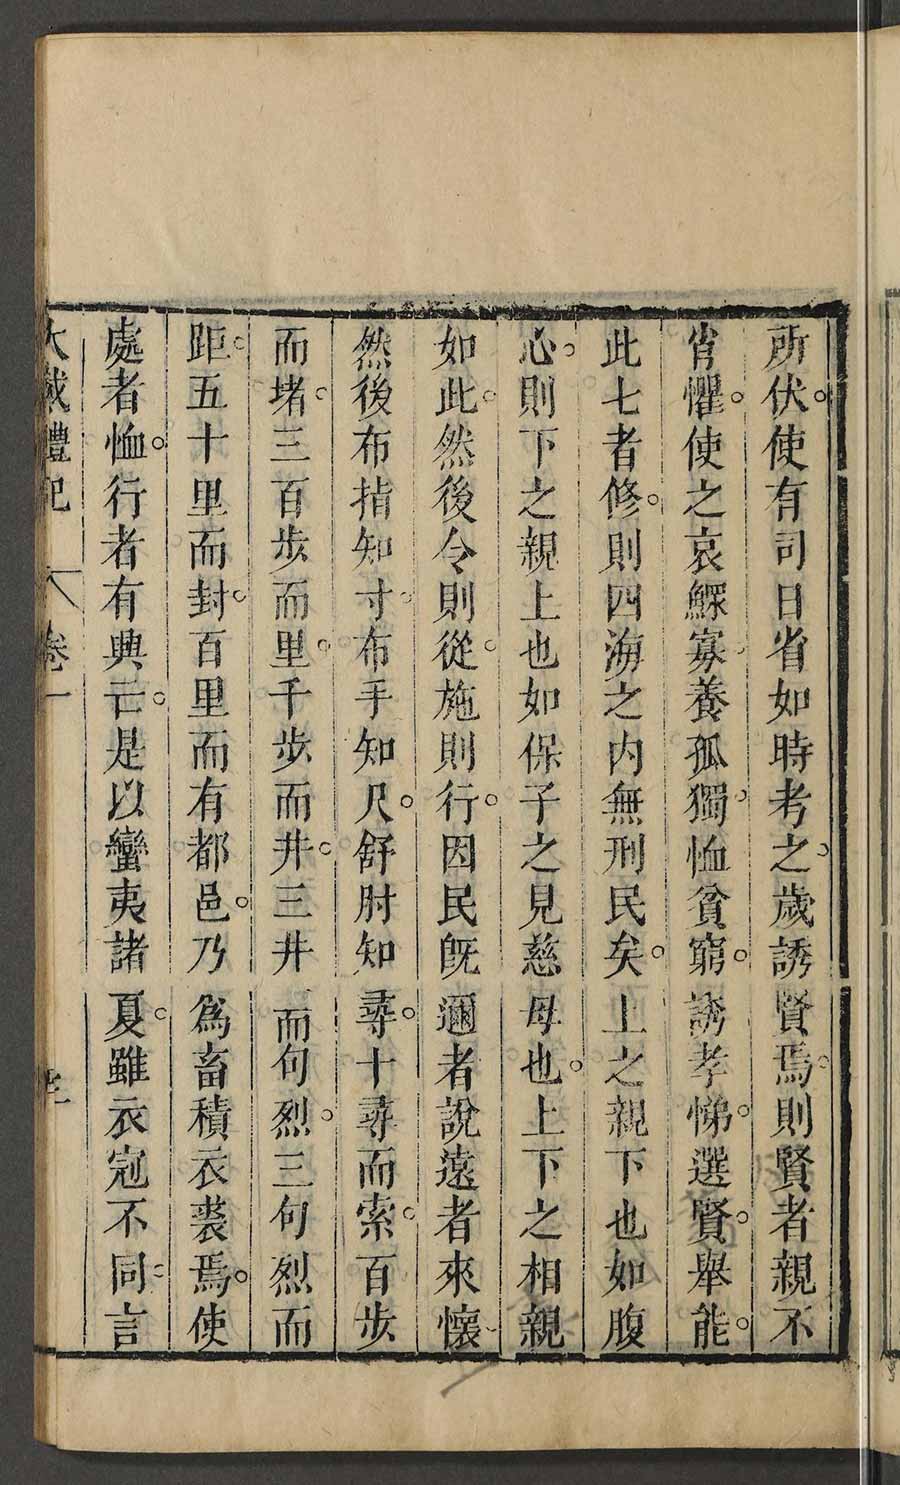 所伏。使有司日省如時考之。歲誘賢焉。則賢者親不
肖懼。使之哀鰥寡。養孤獨。恤貧窮。誘孝悌。選賢。舉能。
此七者修。則四海之内無刑民矣。上之親下也如腹
心。則下之親上也如保子之見慈母也。上下之相親
如此。然後令則從。施則行。因民既邇者說遠者來懷。
然後布指知寸。布手知尺。舒肘知尋。十尋而索。百步
而堵。三百步而里。千步而井。三井而句烈。三句烈而
距。五十里而封。百里而有都邑。乃爲畜積衣裘焉。使
處者恤。行者有興亡。是以蠻夷諸夏。雖衣冠不同。言
大戴禮記 卷一